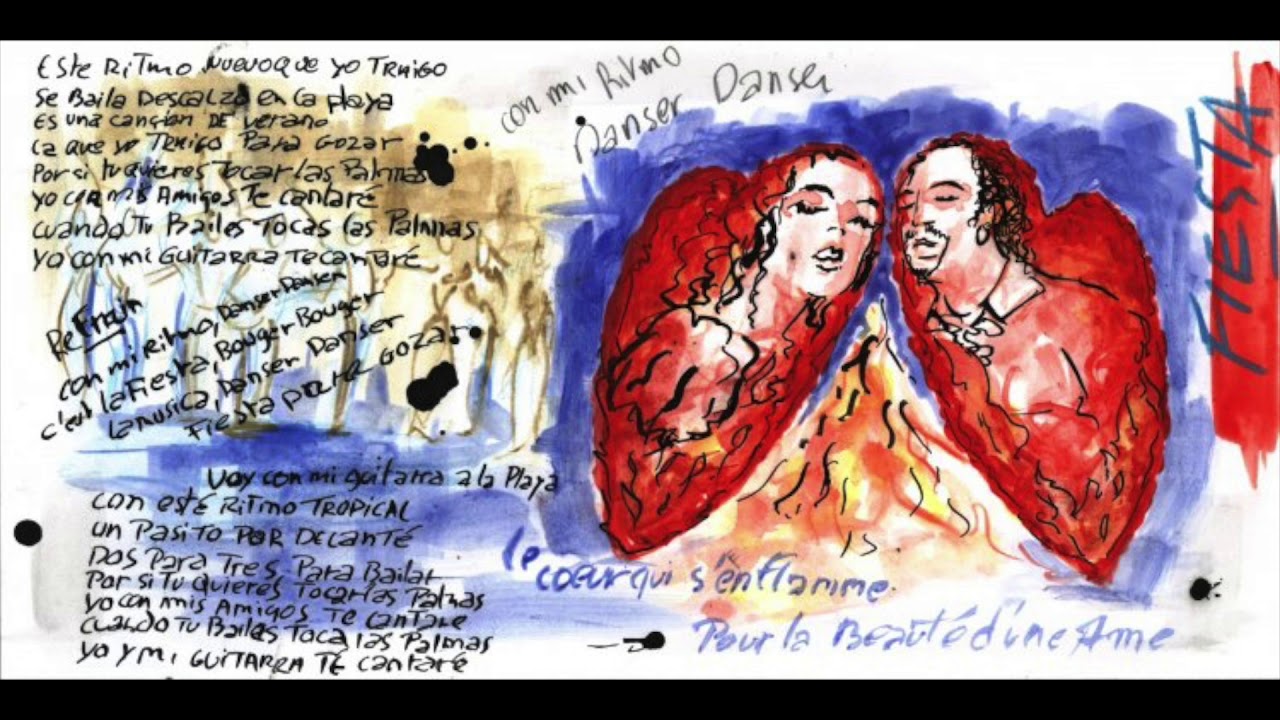 Este Ritmo nuevo que yo Traigo
Se Baila Descalzo en La playa
es una cancion De verano
La que yo Traigo Para Gozar
Por si tu quieres Tocar las Palmas
yo con mis Amigos Te cantaré
cuando Tu Bailes Tocas las Palmas
Yo con mi GUITARRA Te cantaré
Refrain
con mi Ritmo, Danser Danser
c'est la Fiesta, Bouger Bouger
La musica, Danser Danser
Fiesta Gozar
Voy con mi guitarra a la Playa
con esté Ritmo TROPICAL
un PASito POR DeLanté
Dos Para Tres Para Bailar
Por si Tu Quieres Tocar las Palmas
yo con mis Amigos Te cantaré
cuando Tu Bailes Toca las Palmas
yo y mi GUITARRA TE cantaré
con mi Ritmo
Danser Danser
FIESTA
le coeur qui s'enflamme.
Pour la Beauté d'une Ame